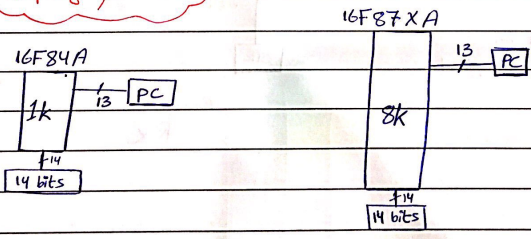 16F84A
1k
13
PC
14
14 bits
16F87XA
13
PC
8k
14
14 bits